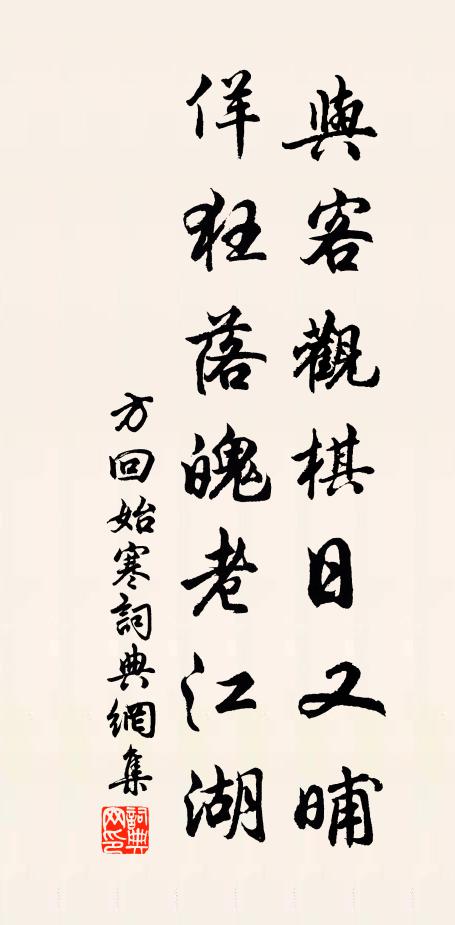 與客觀棋日又晡
佯狂落魄老江湖
方回始寒詞典網集
詞典網印